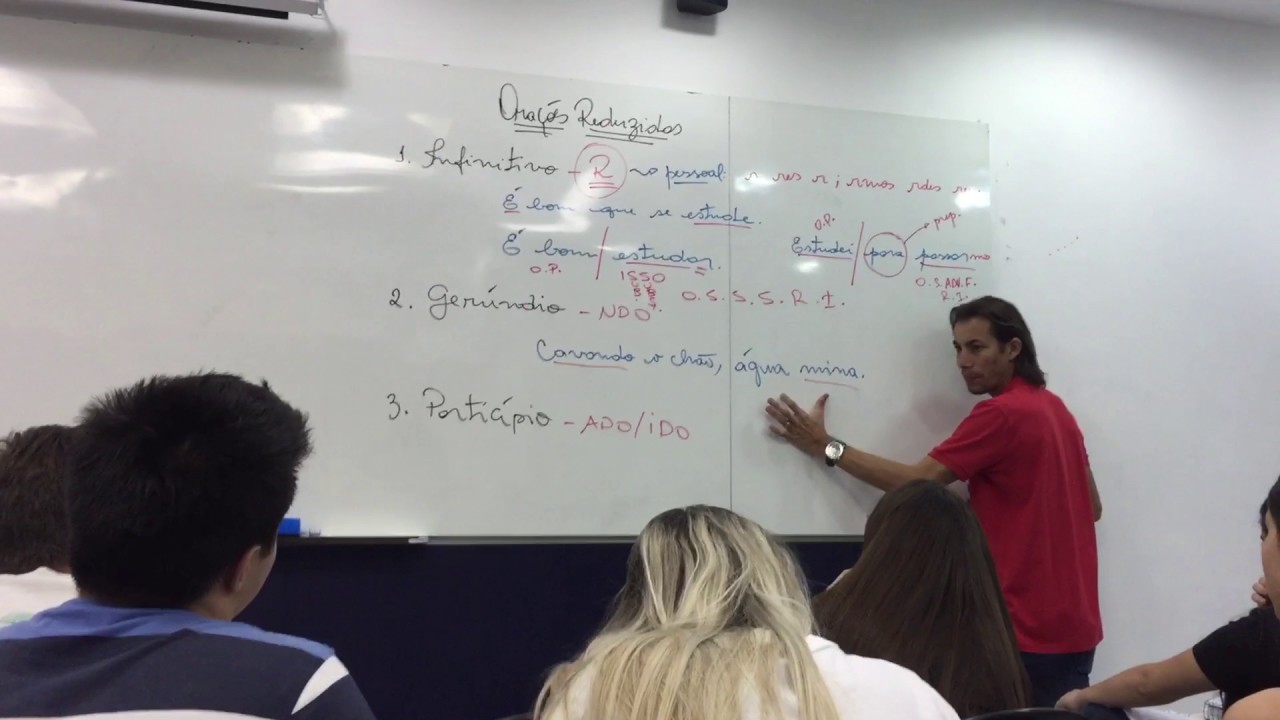 Orações Reduzidas
1. Infinitivo - R → pessoal: r res r; rmos rdes rem
É bom que se estude.
É bom / estudar.
O.P. ISSO
O.S.S.S.R.I.
O.P. prep.
Estudei / para passarmos
O.S.ADV.F.
R.I.
2. Gerúndio - NDO
Cavando o chão, água mina.
3. Particípio - ADO/IDO